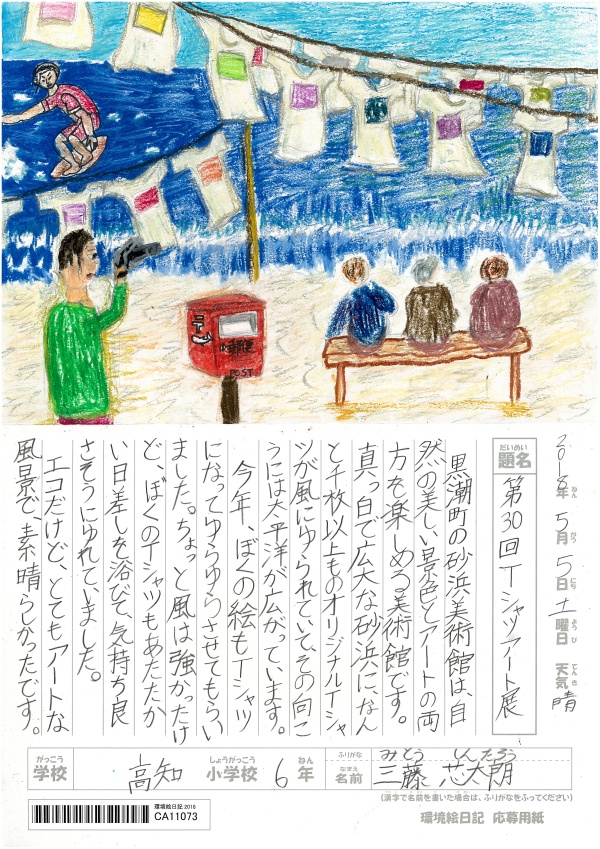 〒
郵便
POST
2018年 5月 5日 土曜日 天気 晴
ねん がつ にち ようび てんき
だいめい
題名
第30回Tシャツアート展
黒潮町の砂浜美術館は、自
然の美しい景色とアートの両
方を楽しめる美術館です。
真っ白で広大な砂浜に、なん
と千枚以上ものオリジナルTシャ
ツが風にゆられていて、その向こ
うには太平洋が広がっています。
今年、ぼくの絵もTシャツ
になってゆらゆらさせてもらい
ました。ちょっと風は強かったけ
ど、ぼくのTシャツもあたたか
い日差しを浴びて、気持ち良
さそうにゆれていました。
エコだけど、とてもアートな
風景で、素晴らしかったです。
がっこう しょうがっこう ねん ふりがな みとう しんたろう
学校 高知 小学校 6年 なまえ 名前 三藤 芯太朗
(漢字で名前を書いた場合は、ふりがなをふってください)
環境絵日記 2018
CA11073
環境絵日記 応募用紙